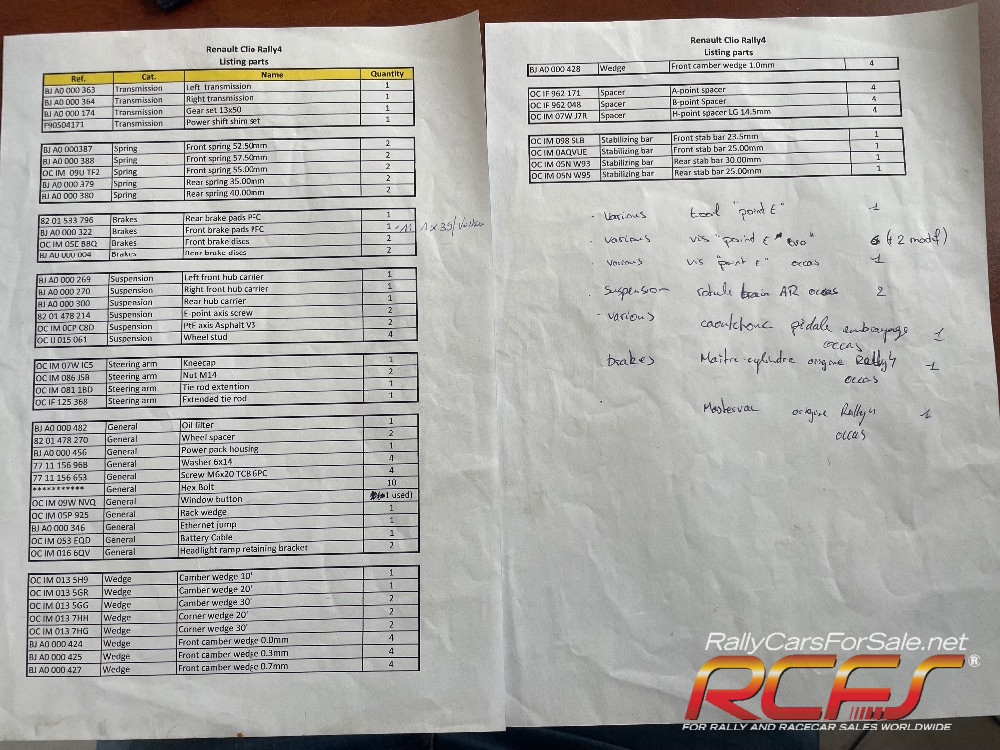 Renault Clio Rally4
Listing parts
Ref. Cat. Name Quantity
BJ A0 000 363 Transmission Left transmission 1
BJ A0 000 364 Transmission Right transmission 1
BJ A0 000 174 Transmission Gear set 13x50 1
F90504171 Transmission Power shift shim set 1
BJ A0 000387 Spring Front spring 52.50mm 2
BJ A0 000 388 Spring Front spring 57.50mm 2
OC IM 09U TF2 Spring Front spring 55.00mm 2
BJ A0 000 379 Spring Rear spring 35.00mm 2
BJ A0 000 380 Spring Rear spring 40.00mm 2
82 01 533 796 Brakes Rear brake pads PFC 1
BJ A0 000 322 Brakes Front brake pads PFC 1 1x39/
OC IM 05E B8Q Brakes Front brake discs 2
BJ A0 000 004 Brakes Rear brake discs 2
BJ A0 000 269 Suspension Left front hub carrier 1
BJ A0 000 270 Suspension Right front hub carrier 1
BJ A0 000 300 Suspension Rear hub carrier 1
82 01 478 214 Suspension E-point axis screw 2
OC IM 0CP C8D Suspension PtE axis Asphalt V3 2
OC IJ 015 061 Suspension Wheel stud 4
OC IM 07W IC5 Steering arm Kneecap 1
OC IM 086 JSB Steering arm Nut M14 2
OC IM 081 1BD Steering arm Tie rod extention 1
OC IF 125 368 Steering arm Extended tie rod 1
BJ A0 000 482 General Oil filter 1
82 01 478 270 General Wheel spacer 2
BJ A0 000 456 General Power pack housing 1
77 11 156 96B General Washer 6x14 4
77 11 156 653 General Screw M6x20 TCB 6PC 4
*********** General Hex Bolt 10
OC IM 09W NVQ General Window button 1 used)
OC IM 05P 925 General Rack wedge 1
BJ A0 000 346 General Ethernet jump 1
OC IM 053 EQD General Battery Cable 1
OC IM 016 6QV General Headlight ramp retaining bracket 2
OC IM 013 5H9 Wedge Camber wedge 10' 1
OC IM 013 5GR Wedge Camber wedge 20' 1
OC IM 013 5GG Wedge Camber wedge 30' 2
OC IM 013 7HH Wedge Corner wedge 20' 2
OC IM 013 7HG Wedge Corner wedge 30' 2
BJ A0 000 424 Wedge Front camber wedge 0.0mm 4
BJ A0 000 425 Wedge Front camber wedge 0.3mm 4
BJ A0 000 427 Wedge Front camber wedge 0.7mm 4
Renault Clio Rally4
Listing parts
BJ A0 000 428 Wedge Front camber wedge 1.0mm 4
OC IF 962 171 Spacer A-point spacer 4
OC IF 962 048 Spacer B-point Spacer 4
OC IM 07W J7R Spacer H-point spacer LG 14.5mm 4
OC IM 098 SLB Stabilizing bar Front stab bar 23.5mm 1
OC IM 0AQVUE Stabilizing bar Front stab bar 25.00mm 1
OC IM 05N W93 Stabilizing bar Rear stab bar 30.00mm 1
OC IM 05N W95 Stabilizing bar Rear stab bar 25.00mm 1
- Various tool "point E" 1
- various vis "point E" evo" 6 (+2 modif)
- various vis "point E" occas 1
- suspension rotule train AR occas 2
- various caoutchouc pédale embrayage 1
occas
brakes Maitre-cylindre origine Rally4 1
occas
Mastervac origine Rally4 1
occas
RallyCarsForSale.net
RCFS®
FOR RALLY AND RACECAR SALES WORLDWIDE